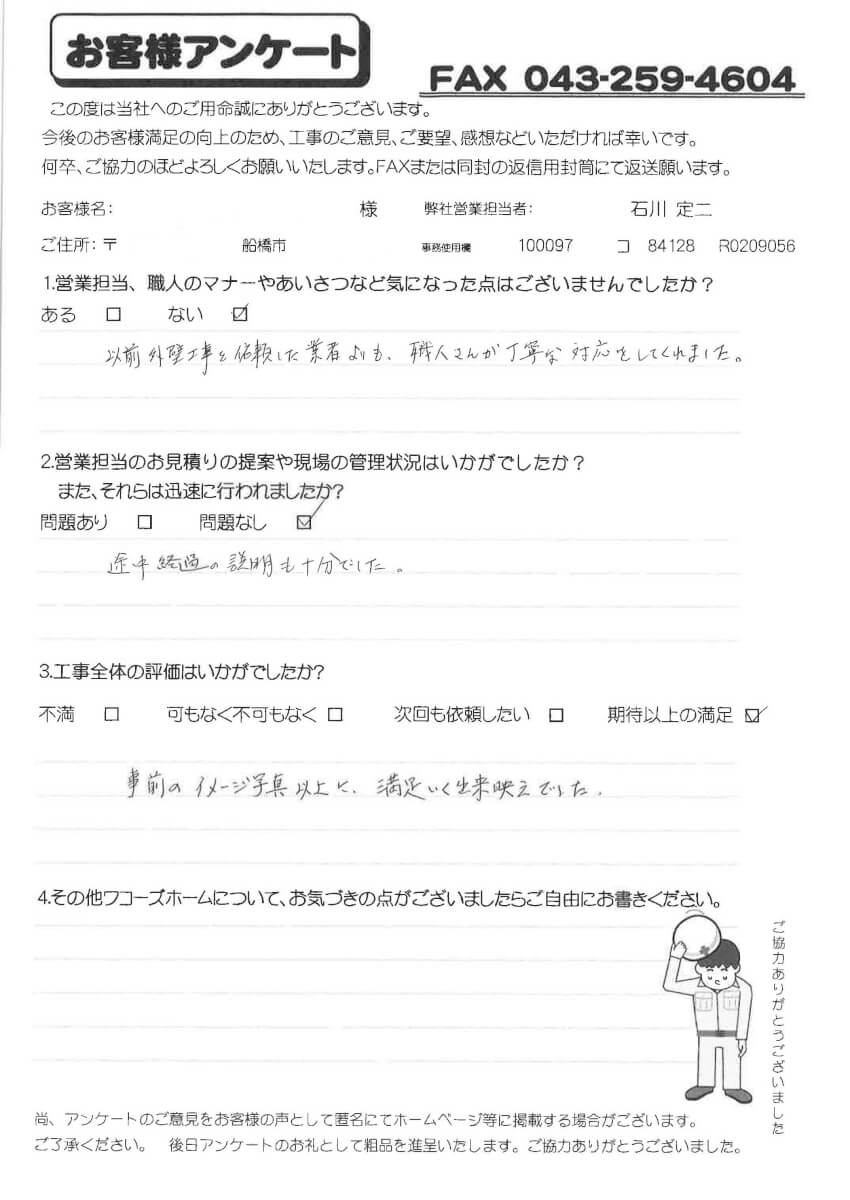 お客様アンケート
FAX 043-259-4604
この度は当社へのご用命誠にありがとうございます。
今後のお客様満足の向上のため、工事のご意見、ご要望、感想などいただければ幸いです。
何卒、ご協力のほどよろしくお願いいたします。FAXまたは同封の返信用封筒にて返送願います。
お客様名： 様 弊社営業担当者： 石川 定二
ご住所：〒 船橋市 事務使用欄 100097 コ 84128 R0209056
1.営業担当、職人のマナーやあいさつなど気になった点はございませんでしたか？
ある □ ない ☑
以前外壁工事を依頼した業者よりも、職人さんが丁寧な対応をしてくれました。
2.営業担当のお見積りの提案や現場の管理状況はいかがでしたか？
また、それらは迅速に行われましたか?
問題あり □ 問題なし ☑
途中経過の説明も十分でした。
3.工事全体の評価はいかがでしたか?
不満 □ 可もなく不可もなく □ 次回も依頼したい □ 期待以上の満足 ☑
事前のイメージ写真以上に、満足いく出来映えでした。
4.その他ワコーズホームについて、お気づきの点がございましたらご自由にお書きください。
ご協力ありがとうございました
尚、アンケートのご意見をお客様の声として匿名にてホームページ等に掲載する場合がございます。
ご了承ください。 後日アンケートのお礼として粗品を進呈いたします。ご協力ありがとうございました。